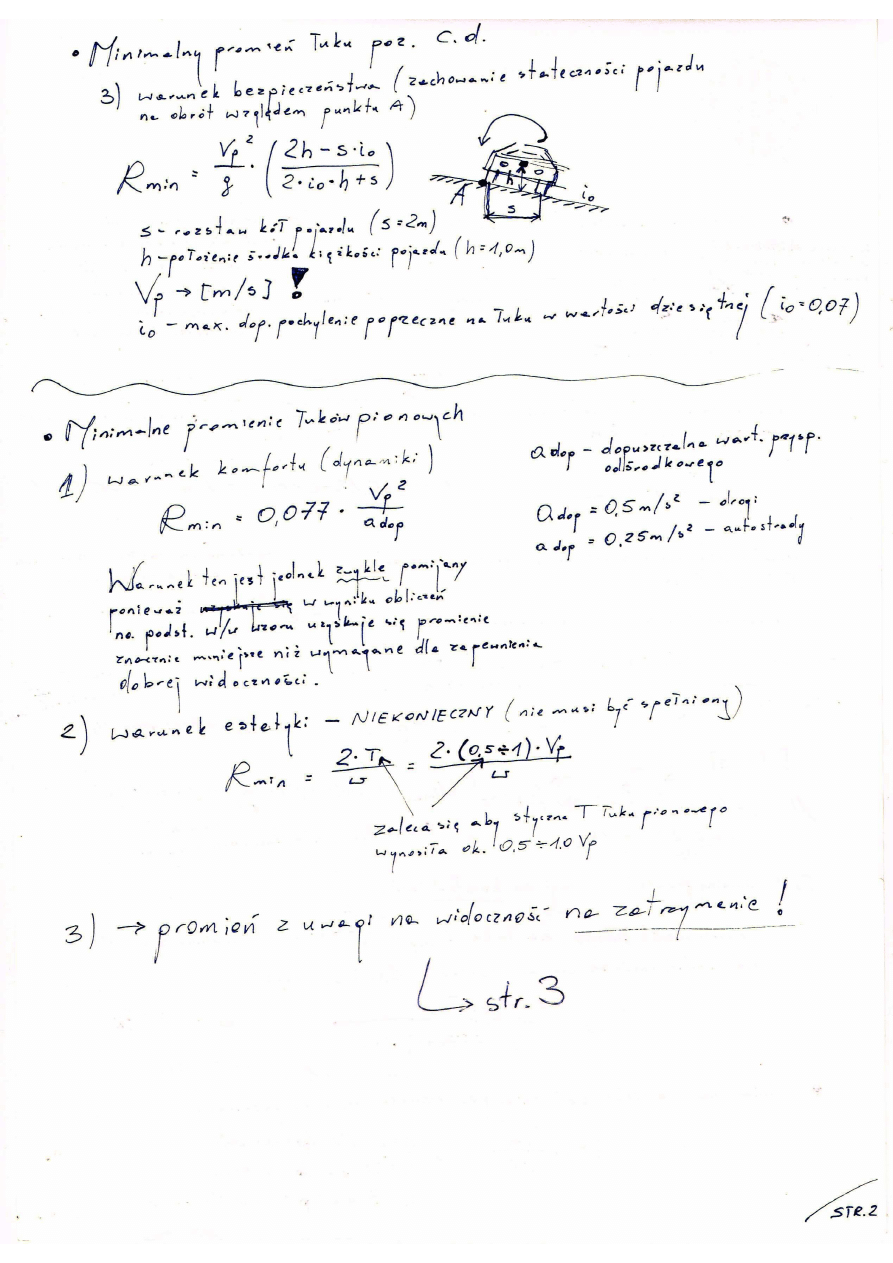 • Minimalny promień łuku poz. c.d.
3) warunek bezpieczeństwa (zachowanie stateczności pojazdu
na obrót względem punktu A)
R min = Vp² / g · ( (2h – s·i₀) / (2·i₀·h + s) )
A
h
s
i₀
s – rozstaw kół pojazdu (s=2m)
h – położenie środka ciężkości pojazdu (h=1,0m)
Vp → [m/s] !
i₀ – max. dop. pochylenie poprzeczne na łuku w wartości dziesiętnej (i₀=0,07)
• Minimalne promienie łuków pionowych
1) warunek komfortu (dynamiki)
R min = 0,077 · Vp² / a dop
a dop – dopuszczalna wart. przysp.
odśrodkowego
a dop = 0,5 m/s² – drogi
a dop = 0,25 m/s² – autostrady
Warunek ten jest jednak zwykle pomijany
ponieważ w wyniku obliczeń
na podst. w/w wzoru uzyskuje się promienie
znacznie mniejsze niż wymagane dla zapewnienia
dobrej widoczności.
2) warunek estetyki – NIEKONIECZNY (nie musi być spełniony)
R min = 2·T / ω = 2·(0,5÷1)·Vp / ω
zaleca się aby styczna T łuku pionowego
wynosiła ok. 0,5÷1.0 Vp
3) → promień z uwagi na widoczność na zatrzymanie!
↳ str. 3
STR. 2